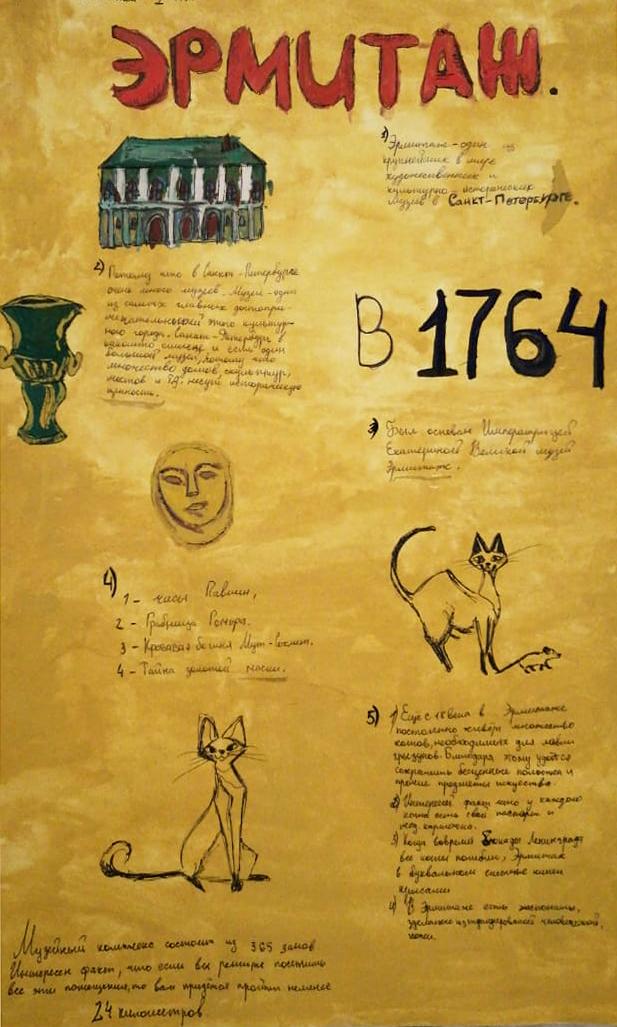 ЭРМИТАЖ.
1) Эрмитаж - один из
крупнейших в мире
художественных и
культурно-исторических
музеев в Санкт-Петербурге.
2) Потому что в Санкт-Петербурге
очень много музеев. Музеи - одни
из самых главных достопри-
мечательностей этого культур-
ного города. Санкт-Петербург в
и есть один
большой музей, потому что
множество домов, скульптур,
мостов и т.д. несут историческую
ценность.
В 1764
3) Был основан Императрицей
Екатериной Великой музей
Эрмитаж.
4)
1 - часы Павлин,
2 - Гробница
3 - Кровавая богиня Мут-Сохмет.
4 - Тайна золотой маски.
5) 1) Ещё с 18 века в Эрмитаже
постоянно живёт множество
котов, необходимых для ловли
грызунов. Благодаря этому удаётся
сохранить бесценные полотна и
прочие предметы искусства.
2) Интересен факт что у каждого
кота есть свой паспорт и
мед. карточка.
3) Когда вовремя Блокады Ленинграда
все кошки погибли, Эрмитаж
в буквальном смысле
крысами
4) В Эрмитаже есть экспонаты,
сделанные из человеческой,
кожи.
Музейный комплекс состоит из 365 залов
Интересен факт, что если вы решите посетить
все эти помещения, то вам придётся пройти неменее
24 километров